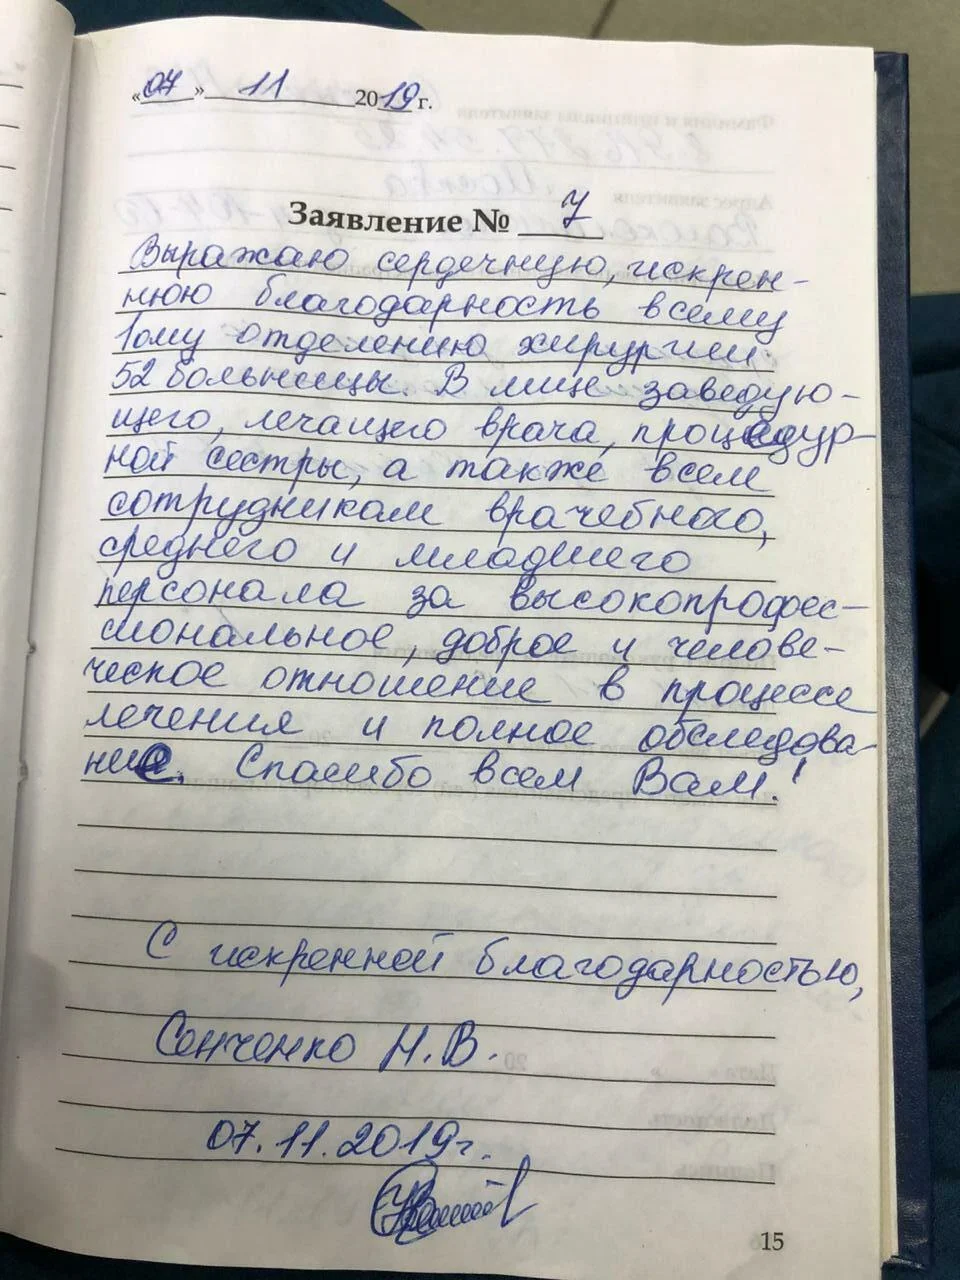 «07» 11 2019 г.
Заявление № 7
Выражаю сердечную, искрен-
нюю благодарность всему
1ому отделению хирургии
52 больницы. В лице заведую-
щего, лечащего врача, процедур-
ной сестры, а также всем
сотрудникам врачебного,
среднего и младшего
персонала за высокопрофес-
сиональное, доброе и челове-
ческое отношение в процессе
лечения и полное обследова-
ние. Спасибо всем Вам!
С искренной благодарностью,
Сенченко Н.В.
07.11.2019г.
15